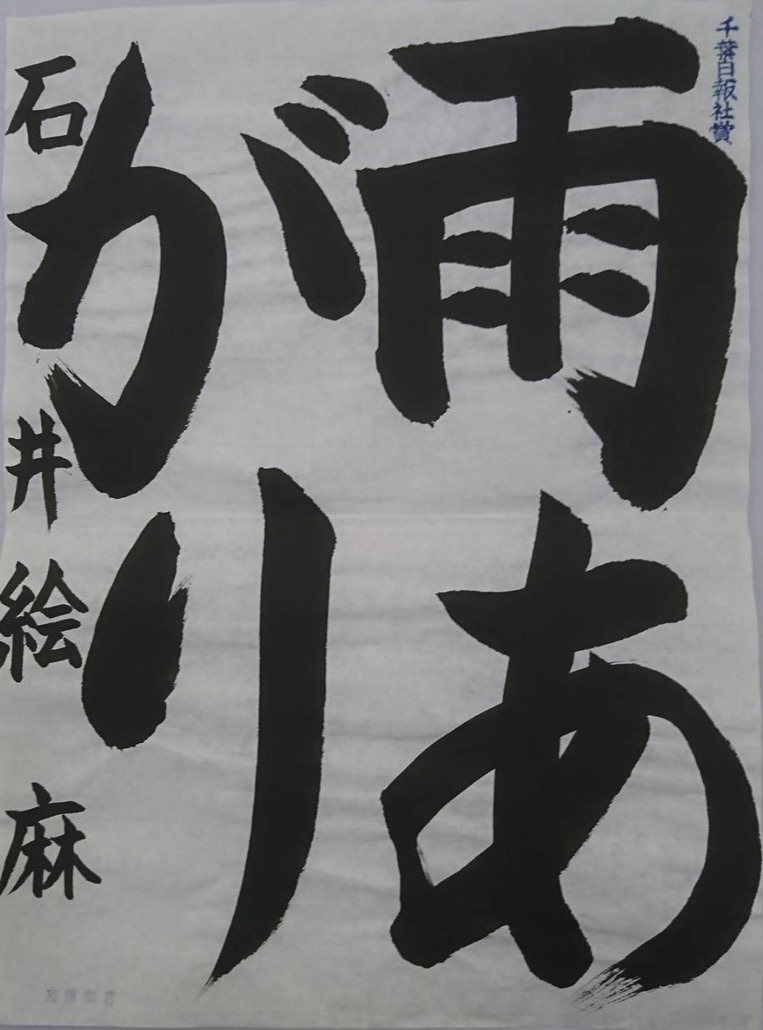 千葉日報社賞
雨あ
がり
石井絵麻